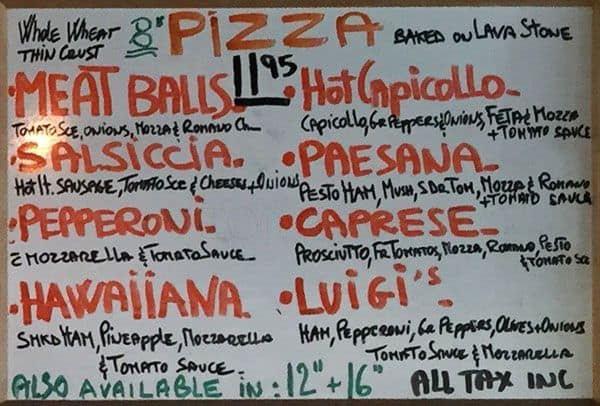 Whole Wheat Thin Crust 8" PIZZA Baked on Lava Stone
11 95
• MEAT BALLS
Tomato Sce, Onions, Mozza & Romano Ch
• SALSICCIA
Hot It. Sausage, Tomato Sce & Cheeses + Onions
• PEPPERONI
Mozzarella & Tomato Sauce
• HAWAIIANA
Smkd Ham, Pineapple, Mozzarella
& Tomato Sauce
• Hot Capicollo
Capicollo, Gr Peppers & Onions, Feta & Mozza
+ Tomato Sauce
• PAESANA
Pesto Ham, Mush, S.D. Tom, Mozza & Romano
+ Tomato Sauce
• CAPRESE
Prosciutto, Fr. Tomatos, Mozza, Romano, Pesto
& Tomato Sce
• LUIGI's
Ham, Pepperoni, Gr Peppers, Olives + Onions
Tomato Sauce & Mozzarella
ALSO AVAILABLE IN: 12" + 16" ALL TAX INC